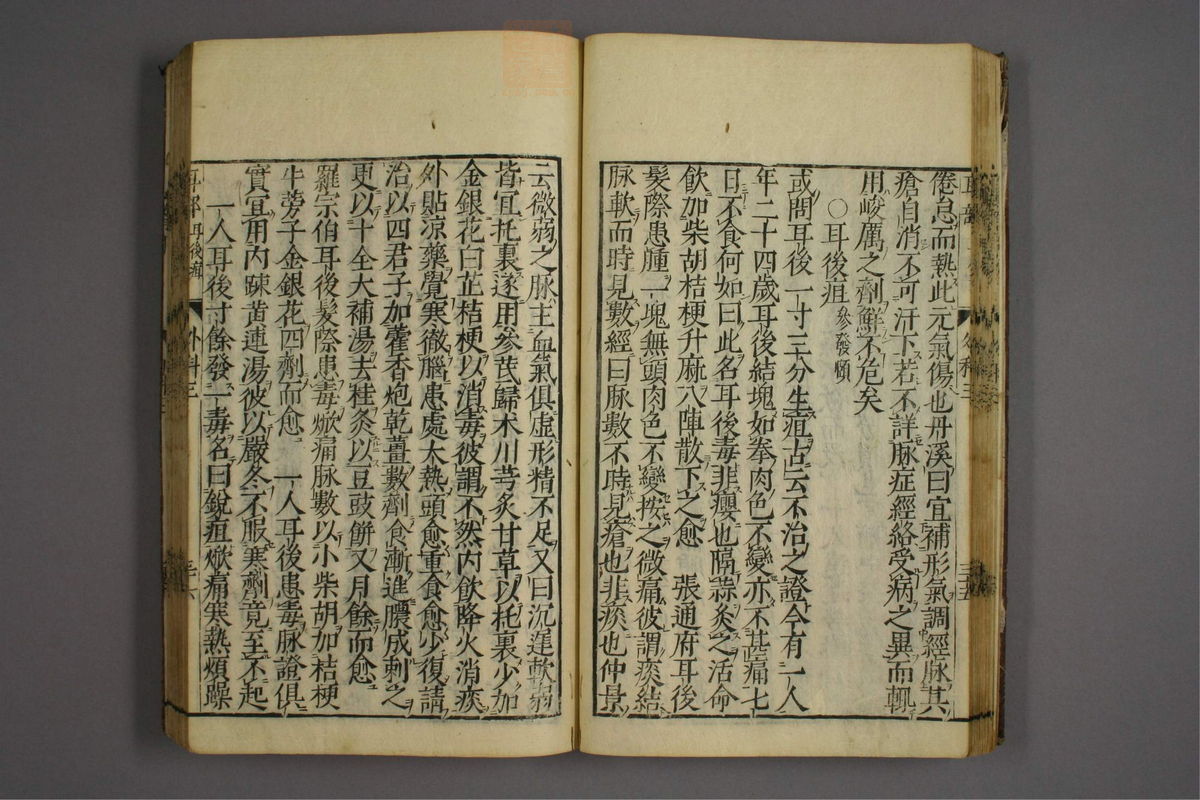 倦怠而熱此元氣傷也丹溪曰宜補形氣調經脉其
瘡自消不可汗下若不詳脉症經絡受病之異而輒
用峻厲之劑鮮不危矣
〇耳後疽 參發頤
或問耳後一寸三分生疽古云不治之證今有一人
年二十四歲耳後結塊如拳肉色不變亦不甚痛七
日不食何如曰此名耳後毒非癭也隔蒜灸之活命
飲加柴胡桔梗升麻八陣散下之愈 張通府耳後
髮際患腫一塊無頭肉色不變按之微痛彼謂痰結
脉軟而時見數經曰脉數不時見瘡也非痰也仲景
云微弱之脉主血氣俱虛形精不足又曰沉遲軟弱
皆宜托裏遂用參芪歸术川芎炙甘草以托裏少加
金銀花白芷桔梗以消毒彼謂不然内飲降火消痰
外貼凉藥覺寒徹腦患處太熱頭愈重食愈少復請
治以四君子加藿香炮乾薑數劑食漸進膿成刺之
更以十全大補湯去桂灸以豆豉餅又月餘而愈
羅宗伯耳後髮際患毒焮痛脉數以小柴胡加桔梗
牛蒡子金銀花四劑而愈 一人耳後患毒脉證俱
實宜用内踈黄連湯彼以嚴冬不服寒劑竟至不起
一人耳後寸餘發一毒名曰銳疽焮痛寒熱煩躁
耳部 耳後疽 外科三